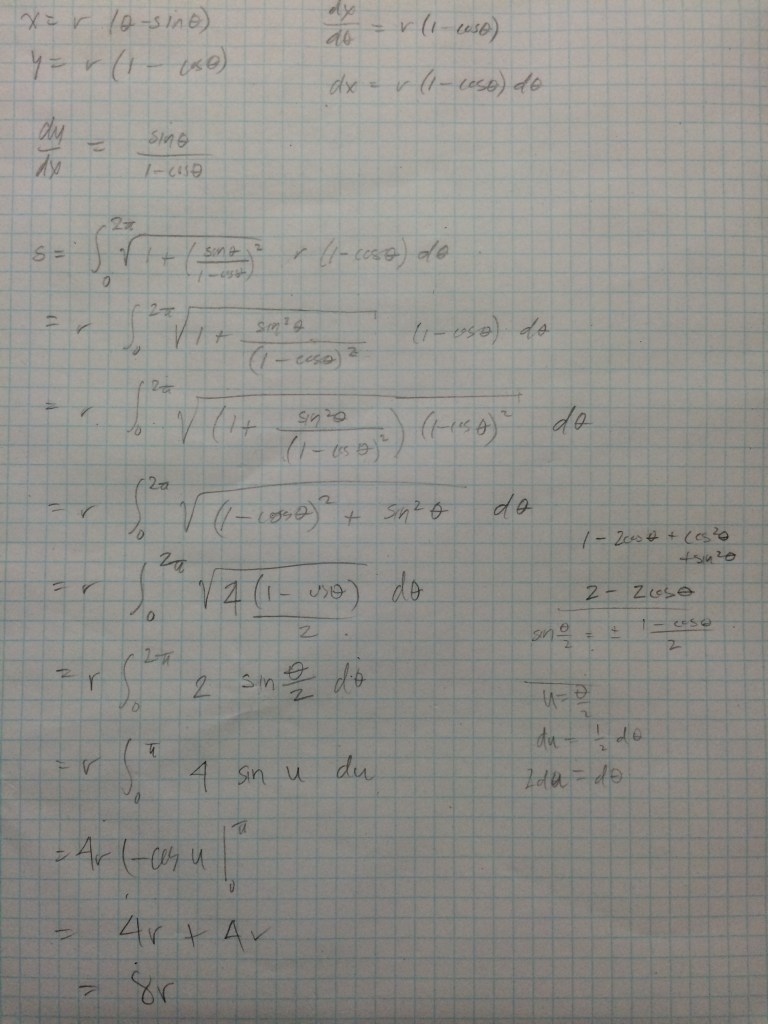 x = r (θ - sinθ)
dx/dθ = r (1 - cosθ)
y = r (1 - cosθ)
dx = r (1 - cosθ) dθ
dy/dx = sinθ/(1 - cosθ)
s = ∫₀^2π √(1 + (sinθ/(1-cosθ))²) r (1-cosθ) dθ
= r ∫₀^2π √(1 + sin²θ/(1-cosθ)²) (1-cosθ) dθ
= r ∫₀^2π √((1 + sin²θ/(1-cosθ)²) (1-cosθ)²) dθ
= r ∫₀^2π √((1-cosθ)² + sin²θ) dθ
1 - 2cosθ + cos²θ
+ sin²θ
= r ∫₀^2π √(4 (1-cosθ)/2) dθ
2 - 2cosθ
sin θ/2 = ± (1-cosθ)/2
= r ∫₀^2π 2 sin θ/2 dθ
u = θ/2
du = 1/2 dθ
= r ∫₀^π 4 sin u du
2du = dθ
= 4r (-cos u |₀^π
= 4r + 4r
= 8r